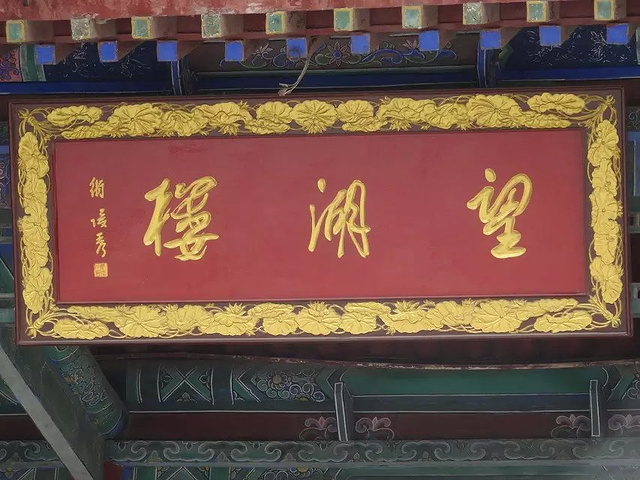 望湖樓
衛俊秀